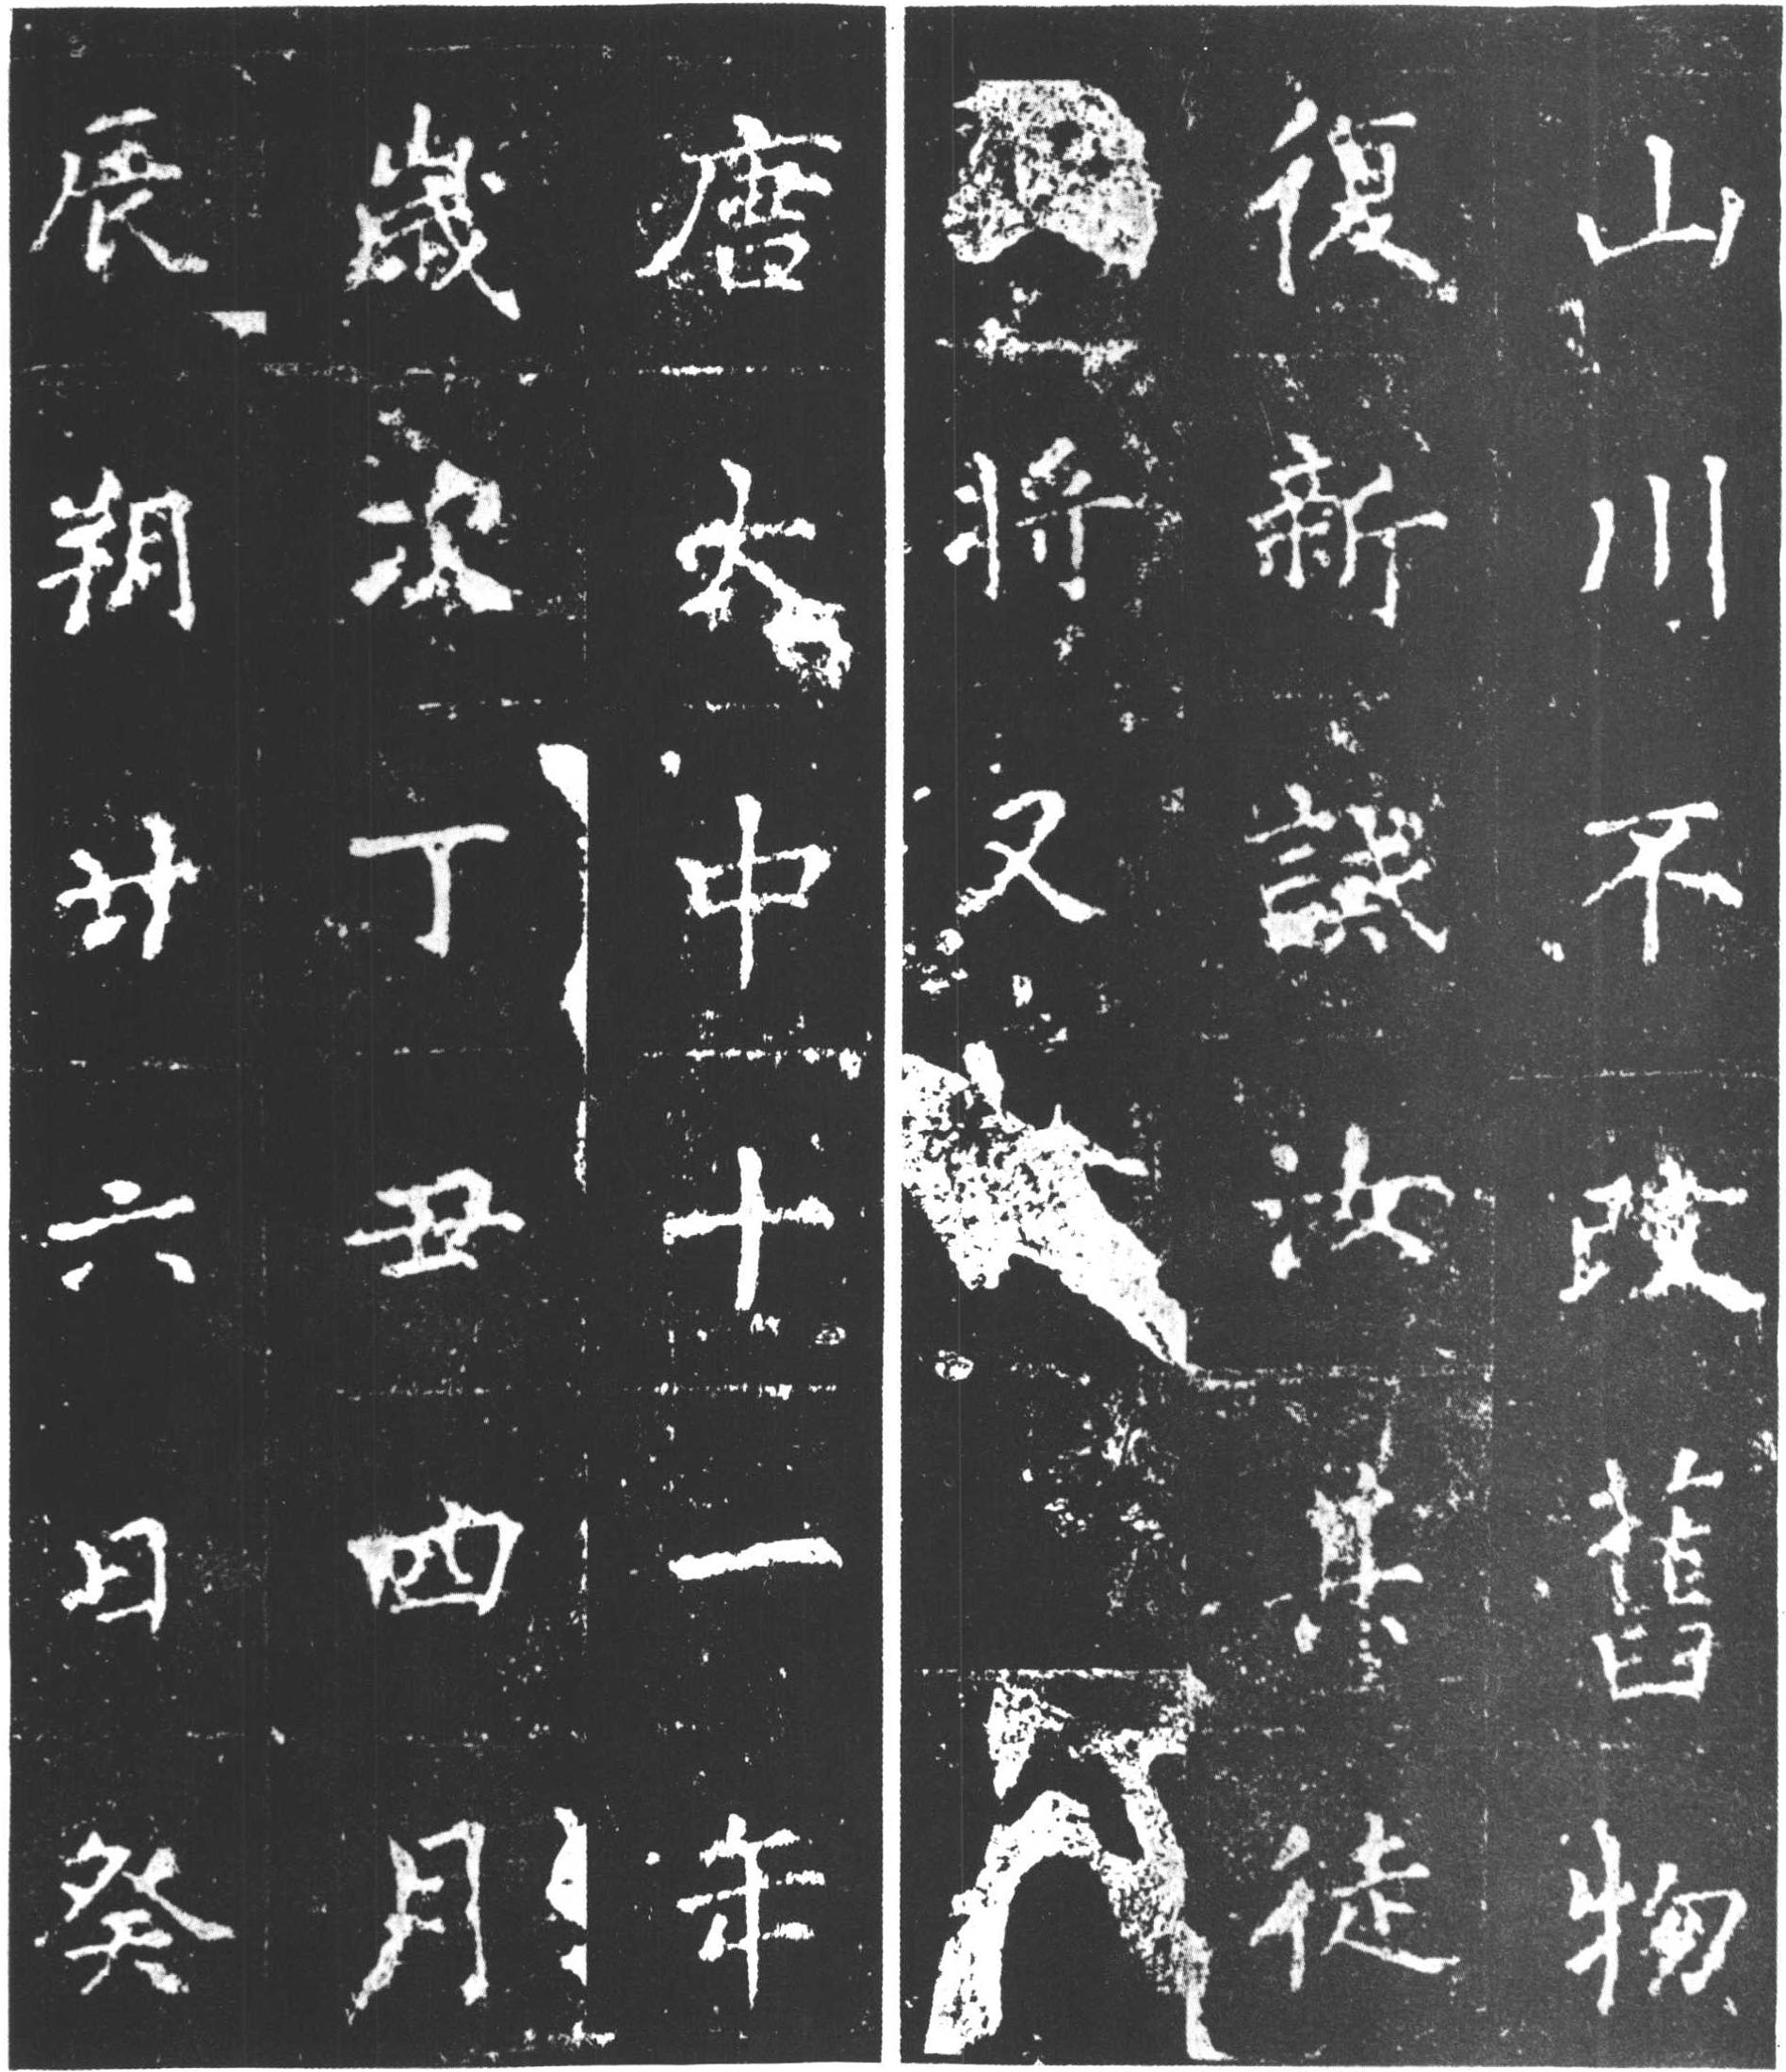 山川不改舊物
復新譔汝其徒
將又
唐大中十一年
歲次丁丑四月
辰朔廿六日癸